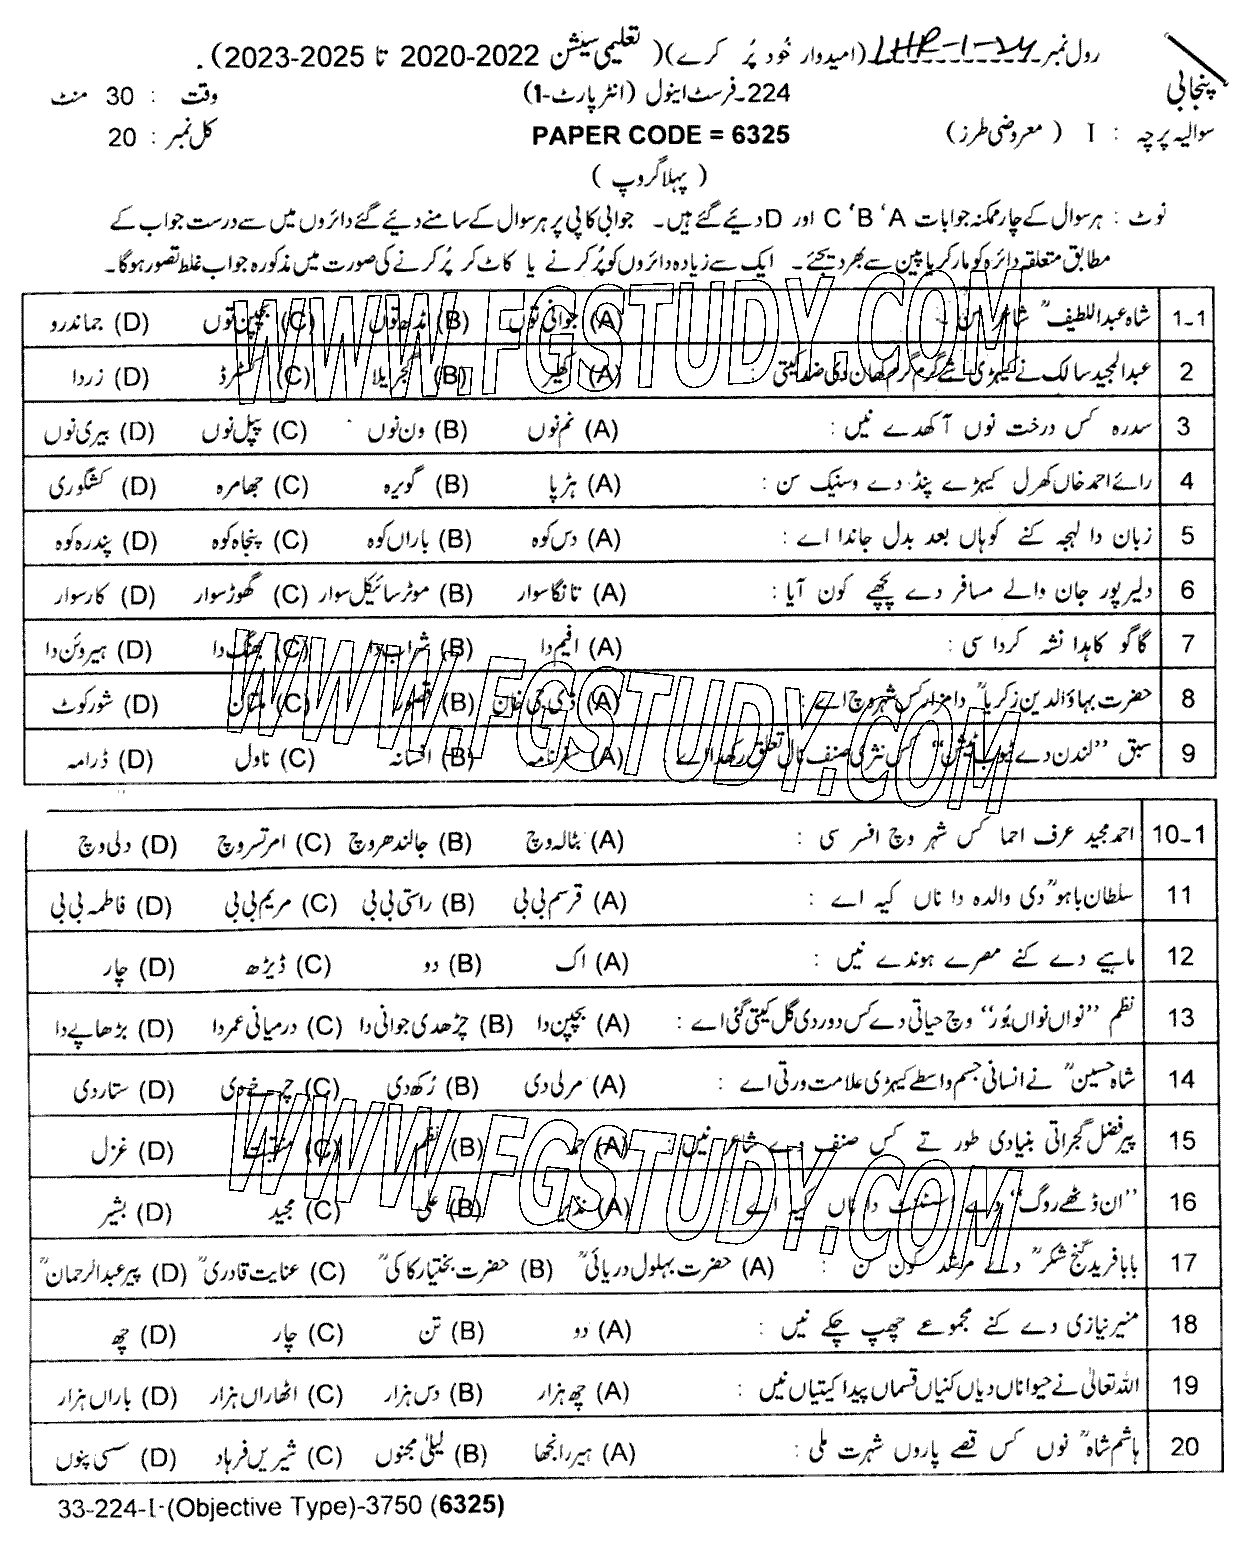 رول نمبر LHR-1-24 (امیدوار خود پُر کرے) (تعلیمی سیشن 2022-2020 تا 2025-2023).
پنجابی
224۔فرسٹ اینول (انٹرپارٹ-1) وقت : 30 منٹ
سوالیہ پرچہ : I (معروضی طرز) PAPER CODE = 6325 کل نمبر : 20
(پہلا گروپ)
نوٹ : ہر سوال کے چار ممکنہ جوابات A ' B ' C اور D دیئے گئے ہیں۔ جوابی کاپی پر ہر سوال کے سامنے دیئے گئے دائروں میں سے درست جواب کے
مطابق متعلقہ دائرہ کو مارکر یا پین سے بھر دیجئے۔ ایک سے زیادہ دائروں کو پُر کرنے یا کاٹ کر پُر کرنے کی صورت میں مذکورہ جواب غلط تصور ہوگا۔
1-1 شاہ عبداللطیفؒ شاعر سن : (A) جوانی توں (B) مڈھ توں (C) بچپن توں (D) جماندرو
2 عبدالمجید سالک نے کیہڑی شے گرم گرم کھان دی ضد کیتی : (A) کھیر (B) گجریلا (C) کسٹرڈ (D) زردا
3 سدرہ کس درخت نوں آکھدے نیں : (A) نم نوں (B) ون نوں (C) پپل نوں (D) بیری نوں
4 رائے احمد خاں کھرل کیہڑے پنڈ دے وسنیک سن : (A) ہڑپا (B) گویرہ (C) جھامرہ (D) کشگوری
5 زبان دا لہجہ کنے کوہاں بعد بدل جاندا اے : (A) دس کوہ (B) باراں کوہ (C) پنجاہ کوہ (D) پندرہ کوہ
6 دلیر پور جان والے مسافر دے پچھے کون آیا : (A) تانگا سوار (B) موٹر سائیکل سوار (C) گھوڑ سوار (D) کار سوار
7 گاگو کاہدا نشہ کردا سی : (A) افیم دا (B) شراب دا (C) بھنگ دا (D) ہیروئن دا
8 حضرت بہاؤالدین زکریاؒ دا مزار کس شہر وچ اے : (A) ڈی جی خان (B) قصور (C) ملتان (D) شورکوٹ
9 سبق "لندن دے ٹیوب سٹیشن" کس نثری صنف نال تعلق رکھدا اے (A) سفرنامہ (B) افسانہ (C) ناول (D) ڈرامہ
10-1 احمد مجید عرف احما کس شہر وچ افسر سی : (A) بٹالہ وچ (B) جالندھر وچ (C) امرتسر وچ (D) دلی وچ
11 سلطان باہوؒ دی والدہ دا ناں کیہ اے : (A) قرسم بی بی (B) راستی بی بی (C) مریم بی بی (D) فاطمہ بی بی
12 ماہیے دے کنے مصرے ہوندے نیں : (A) اک (B) دو (C) ڈیڑھ (D) چار
13 نظم "نواں نواں بُور" وچ حیاتی دے کس دور دی گل کیتی گئی اے : (A) بچپن دا (B) چڑھدی جوانی دا (C) درمیانی عمر دا (D) بڑھاپے دا
14 شاہ حسینؒ نے انسانی جسم واسطے کیہڑی علامت ورتی اے : (A) مرلی دی (B) رُکھ دی (C) چرخے دی (D) ستار دی
15 پیر فضل گجراتی بنیادی طور تے کس صنف دے شاعر نیں : (A) حمد (B) نظم (C) منقبت (D) غزل
16 "ان ڈٹھے روگ" دے اسسٹنٹ دا ناں کیہ اے : (A) نذیر (B) علی (C) مجید (D) بشیر
17 بابا فرید گنج شکرؒ دے مرشد کون سن : (A) حضرت بہلول دریائیؒ (B) حضرت بختیار کاکیؒ (C) عنایت قادریؒ (D) پیر عبدالرحمانؒ
18 منیر نیازی دے کنے مجموعے چھپ چکے نیں : (A) دو (B) تن (C) چار (D) چھ
19 اللہ تعالیٰ نے حیواناں دیاں کنیاں قسماں پیدا کیتیاں نیں : (A) چھ ہزار (B) دس ہزار (C) اٹھاراں ہزار (D) باراں ہزار
20 ہاشم شاہؒ نوں کس قصے پاروں شہرت ملی : (A) ہیر رانجھا (B) لیلیٰ مجنوں (C) شیریں فرہاد (D) سسی پنوں
33-224-I-(Objective Type)-3750 (6325)
WWW.FGSTUDY.COM
WWW.FGSTUDY.COM
WWW.FGSTUDY.COM